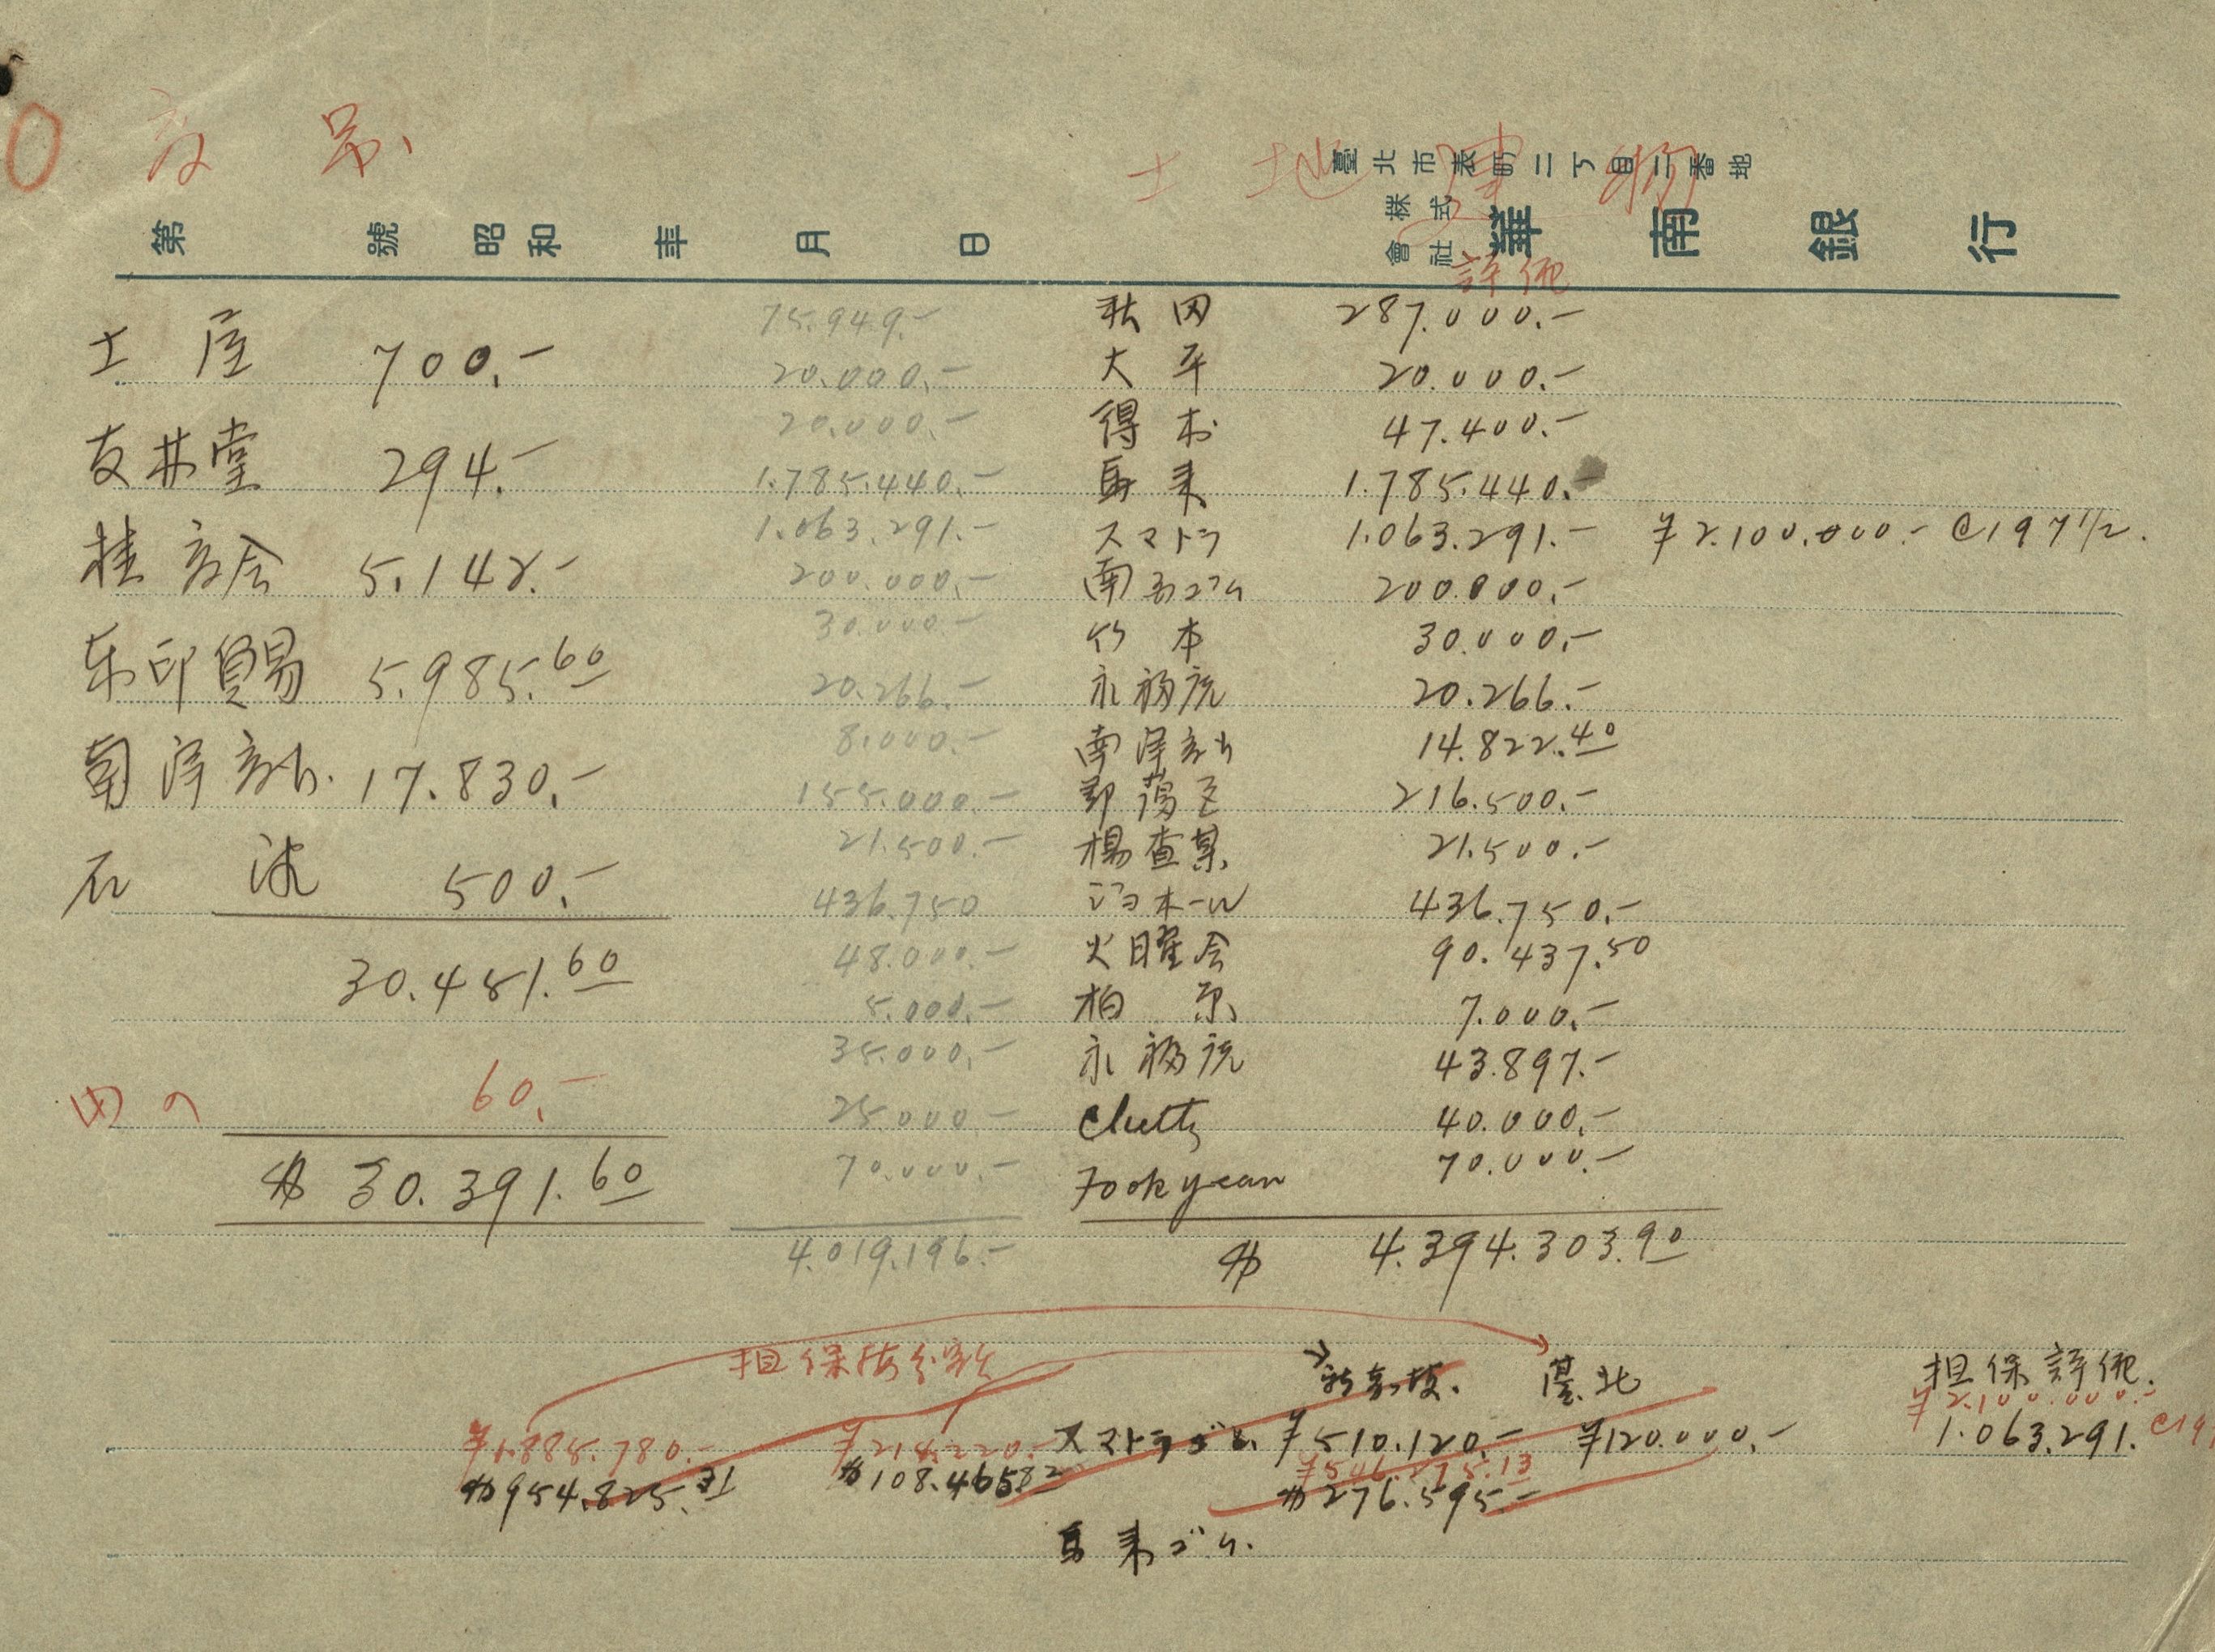 土地建物
臺北市表町二丁目二番地
第 號 昭和 年 月 日 株式會社 華南銀行
評価
土屋 700.- 75.949.- 秋田 287.000.-
20.000.- 大平 20.000.-
友林堂 294.- 20.000.- 得本 47.400.-
1.785.440.- 馬来 1.785.440.-
桂商会 5.142.- 1.063.291.- スマトラ 1.063.291.- ¥2.100.000.- @197 1/2.
200.000.- 南 ゴム 200.000.-
东印貿易 5.985.60 30.000.- 竹本 30.000.-
20.266.- 永福 20.266.-
南洋 17.830.- 8.000.- 南洋 14.822.40
155.000.- 216.500.-
石 500.- 21.500.- 楊查某 21.500.-
436.750 ジョホール 436.750.-
30.451.60 48.000.- 火曜会 90.437.50
5.000.- 柏原 7.000.-
60.- 35.000.- 永福 43.897.-
内 25.000.- Chetty 40.000.-
$ 30.391.60 70.000.- Fookyean 70.000.-
4.019.196.- $ 4.394.303.90
担保 臺北 担保評価.
¥2.100.000.-
¥1.885.780.- ¥214.220.- スマトラゴム. ¥510.120.- ¥120.000.- 1.063.291.
$954.825. $108.465.82 $276.595.-
馬来ゴム.